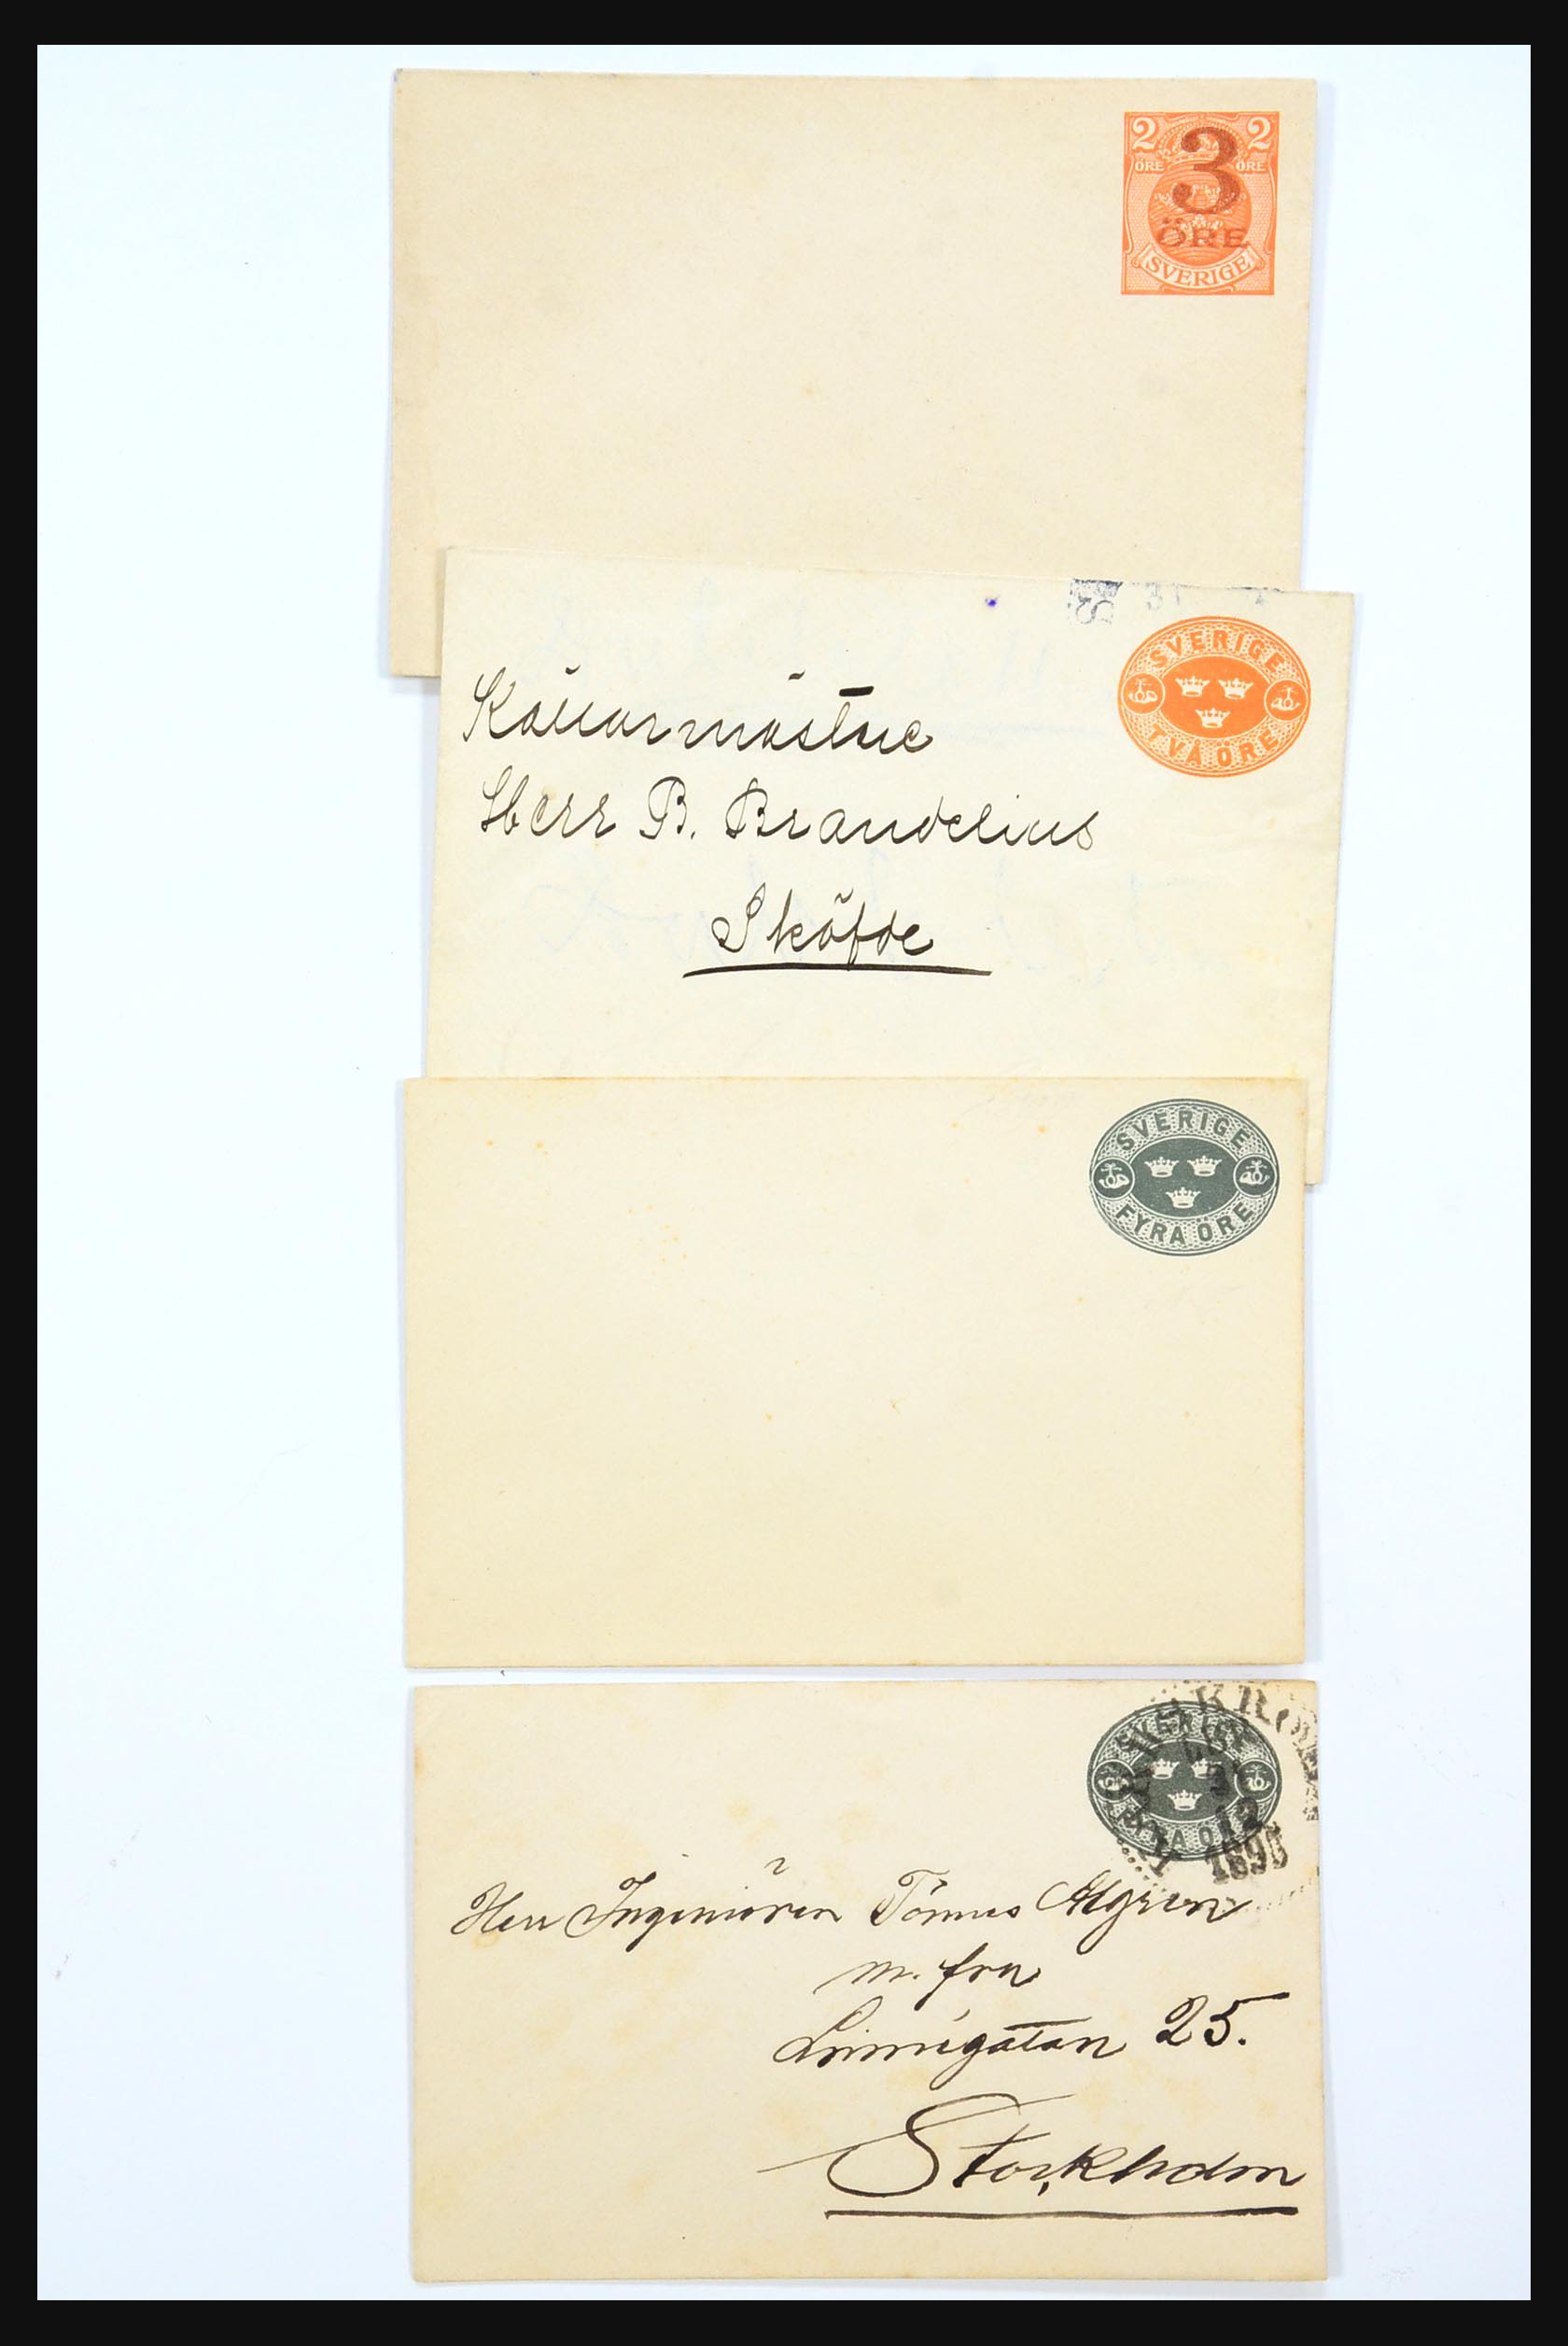 2 2
ÖRE ÖRE
3
ÖRE
SVERIGE
31
SVERIGE
TVÅ ÖRE
Källarmästare
Herr B. Brandelius
Sköfde
SVERIGE
FYRA ÖRE
SVERIGE
FYRA ÖRE
31
12
Herr Ingeniören Tönnes Algren
m. fru
Linnégatan 25.
Stockholm